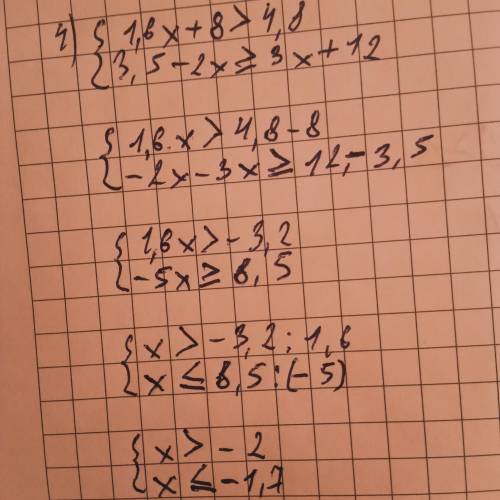 4) { 1,6x + 8 > 4,8
{ 3,5 - 2x ≥ 3x + 12
{ 1,6·x > 4,8 - 8
{ -2x - 3x ≥ 12, - 3,5
{ 1,6x > -3,2
{ -5x ≥ 8,5
{ x > -3,2 : 1,6
{ x ≤ 8,5 : (-5)
{ x > -2
{ x ≤ -1,7